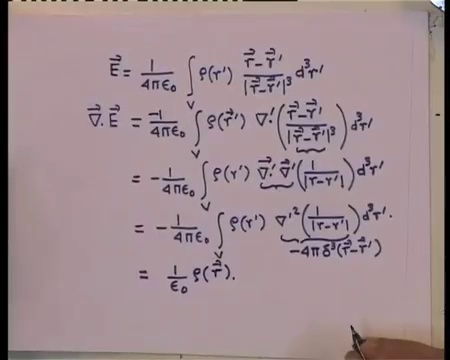 E⃗ = 1/4πε₀ ∫_V ρ(r') (r⃗-r⃗')/|r⃗-r⃗'|³ d³r'
∇⃗.E⃗ = -1/4πε₀ ∫_V ρ(r⃗') ∇'.((r⃗-r⃗')/|r⃗-r⃗'|³) d³r'
= - 1/4πε₀ ∫_V ρ(r') ∇⃗'.∇⃗'(1/|r-r'|) d³r'
= - 1/4πε₀ ∫_V ρ(r') ∇'²(1/|r-r'|) d³r'.
-4πδ³(r⃗-r⃗')
= 1/ε₀ ρ(r⃗).